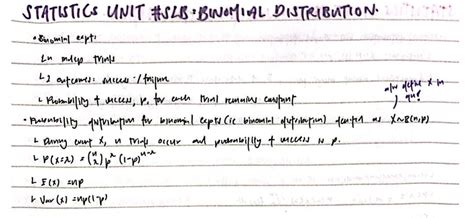 STATISTICS UNIT #SLB: BINOMIAL DISTRIBUTION.
• Binomial expt:
↳ n indep trials
↳ 2 outcomes: success / failure
↳ Probability of success, p, for each trial remains constant
define X in
• Probability distribution for binomial expts (ie binomial distribution) denoted as X~B(n,p)
↳ During expt X, n trials occur and probability of success is p.
↳ P(X=x) = (n x) p^x (1-p)^(n-x)
↳ E(X) = np
↳ Var(X) = np(1-p)